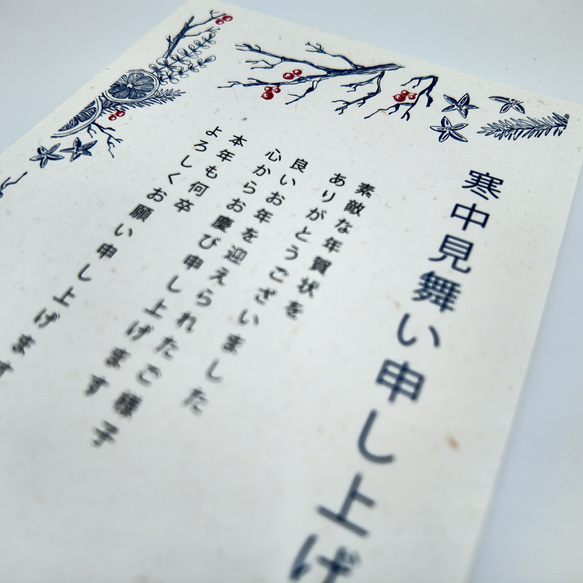 寒中見舞い申し上げ
素敵な年賀状を
ありがとうございました
良いお年を迎えられたご様子
心からお慶び申し上げます
本年も何卒
よろしくお願い申し上げます